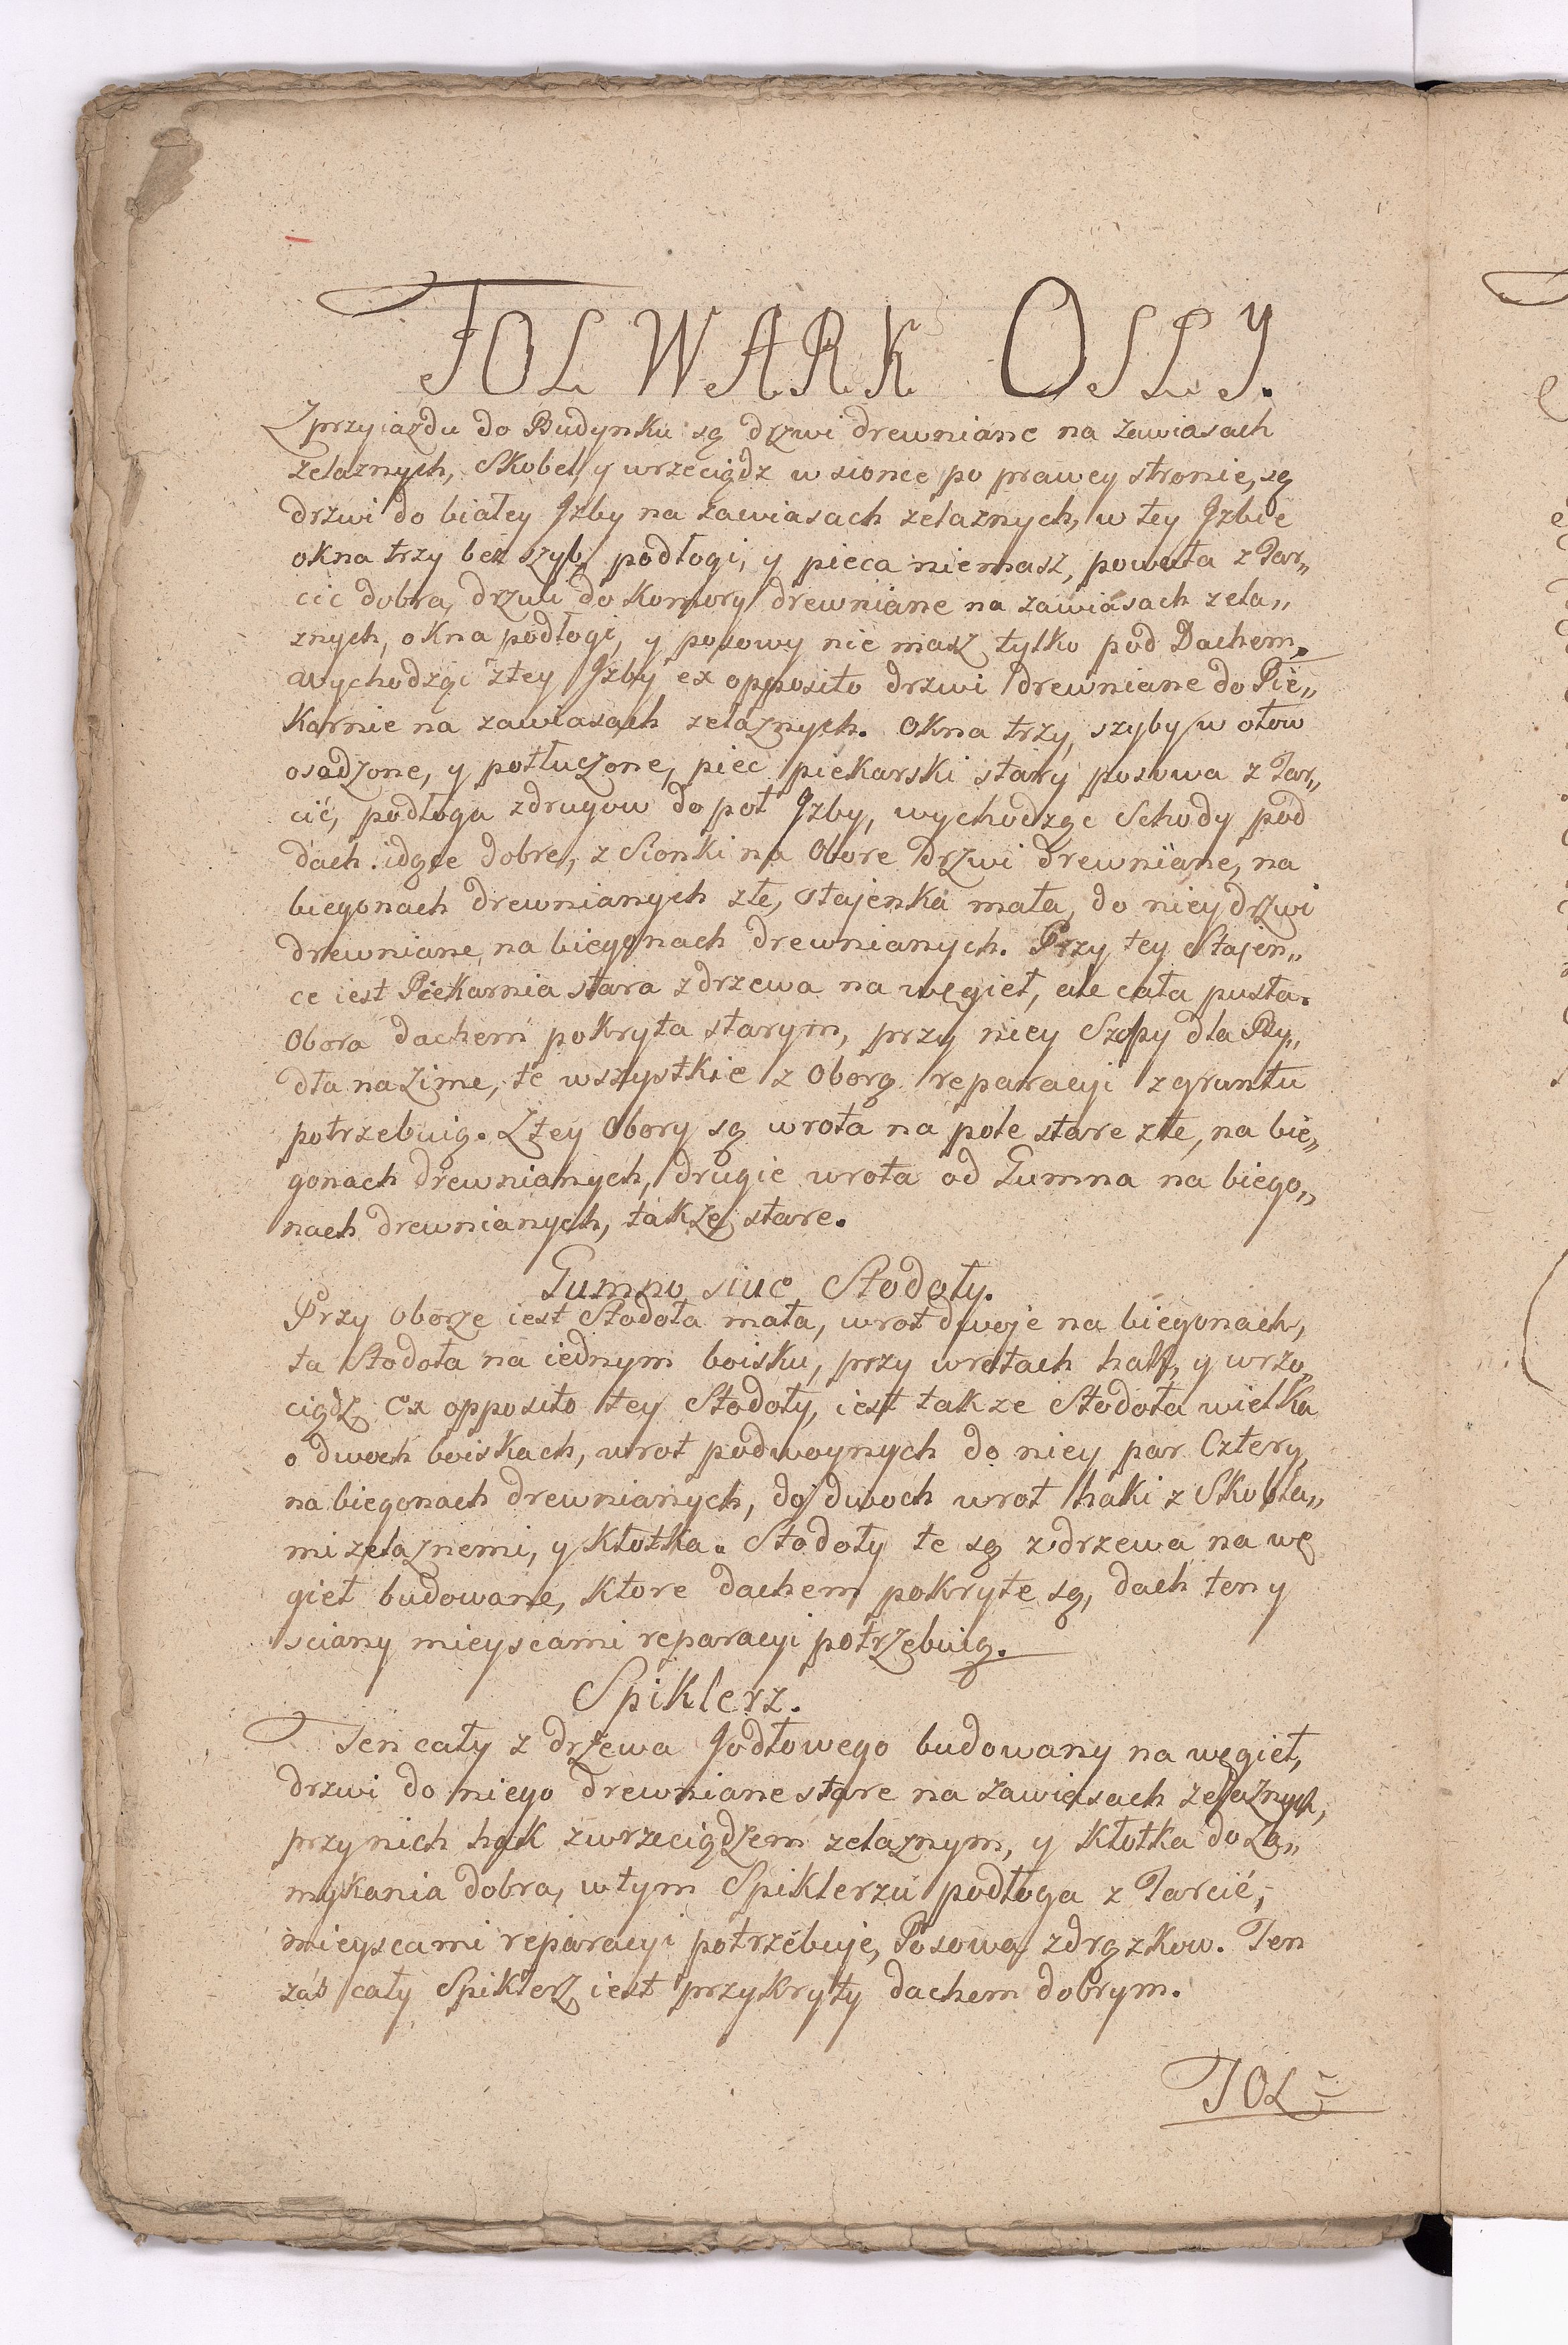 FOLWARK OSŁY.
Z przyiazdu do Budynku są drzwi drewniane na zawiasach
zelaznych, Skobel, y wrzeciądz w sionce po prawey stronie, są
drzwi do białey Jzby na zawiasach zelaznych, w tey Jzbie
okna trzy bez szyb, podłogi, y pieca niemasz, powała z Tar„
cic dobra, drzwi do Komory drewniane na zawiasach zela„
znych, okna podłogi, y posowy nie masz tylko pod Dachem.
Wychodząc z tey Jzby ex opposito drzwi drewniane do Pie„
karnie na zawiasach zelaznych. Okna trzy, szyby w ołow
osadzone, y potłuczone, piec piekarski stary posowa z Tar„
cić, podłoga z drugow do poł Jzby, wychodząc Schody pod
dach idące dobre, z Sionki na Obore drzwi drewniane, na
biegonach drewnianych złe, stajenka mała, do niey drzwi
drewniane, na biegonach drewnianych. Przy tey Stajen„
ce iest Piekarnia stara z drzewa na węgieł, ale cała pusta.
Obora dachem pokryta starym, przy niey Szopy dla By„
dła na Zime, te wszystkie z Oborą reparacyi z gruntu
potrzebuią. Z tey Obory są wrota na pole stare złe, na bie„
gonach drewnianych, drugie wrota od Gumna na biego„
nach drewnianych, także stare.
Gumno siue Stodoły.
Przy oborze iest Stodoła mała, wrot dwoje na biegonach,
ta Stodoła na iednym boisku, przy wrotach hak, y wrze„
ciądz Ex opposito tey Stodoły, iest takze Stodoła wielka
o dwoch boiskach, wrot podwoynych do niey par Cztery,
na biegonach drewnianych, do dwoch wrot haki z Skobla„
mi zelaznemi, y Kłotka. Stodoły te są z drzewa na wę
gieł budowane, ktore dachem pokryte są, dach ten y
sciany mieyscami reparacyi potrzebuią.
Spiklerz.
Ten cały z drzewa Jodłowego budowany na węgieł,
drzwi do niego drewniane stare na zawiasach zelaznych,
przy nich hak z wrzeciądzem zelaznym, y Kłotka do Za„
mykania dobra, w tym Spiklerzu podłoga z Tarcić,
mieyscami reparacyi potrzebuje, Posowa z drążkow. Ten
zaś cały Spiklerz iest przykryty dachem dobrym.
FOL=